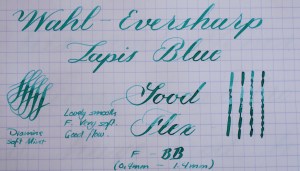 Wahl-Eversharp
Lapis Blue
Good
Flex
Lovely smooth
F. Very soft.
Good flow
Diamine
Soft Mint
F - BB
(0.4mm - 1.4mm)